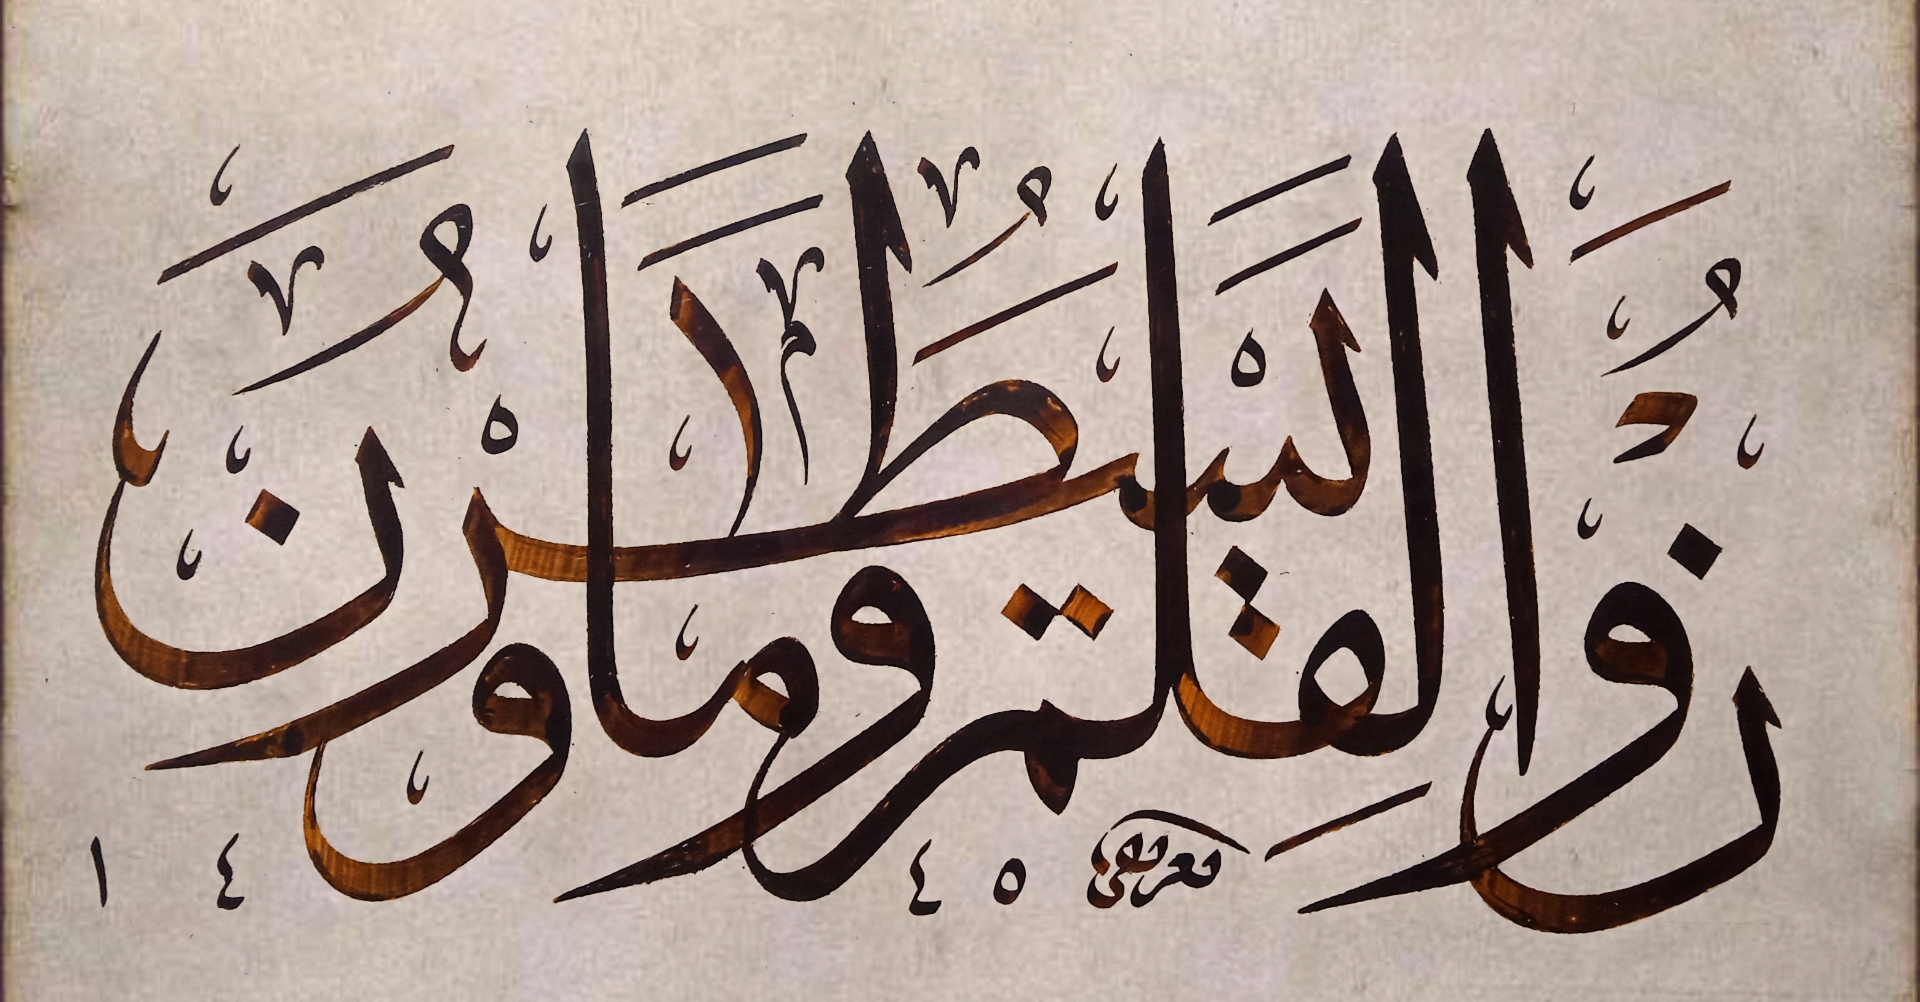 ن وَالْقَلَمِ وَمَا يَسْطُرُونَ
١٤٤٥